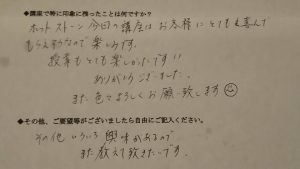 ◆講座で特に印象に残ったことは何ですか?
ホットストーン 今回の講座はお客様にとても喜んで
もらえそうなので楽しみです。
授業もとても楽しかったです!!
ありがとうございました。
また色々よろしくお願い致します
◆その他、ご要望等がございましたら自由にご記入ください。
その他いろいろ興味があるので
また教えて頂きたいです。